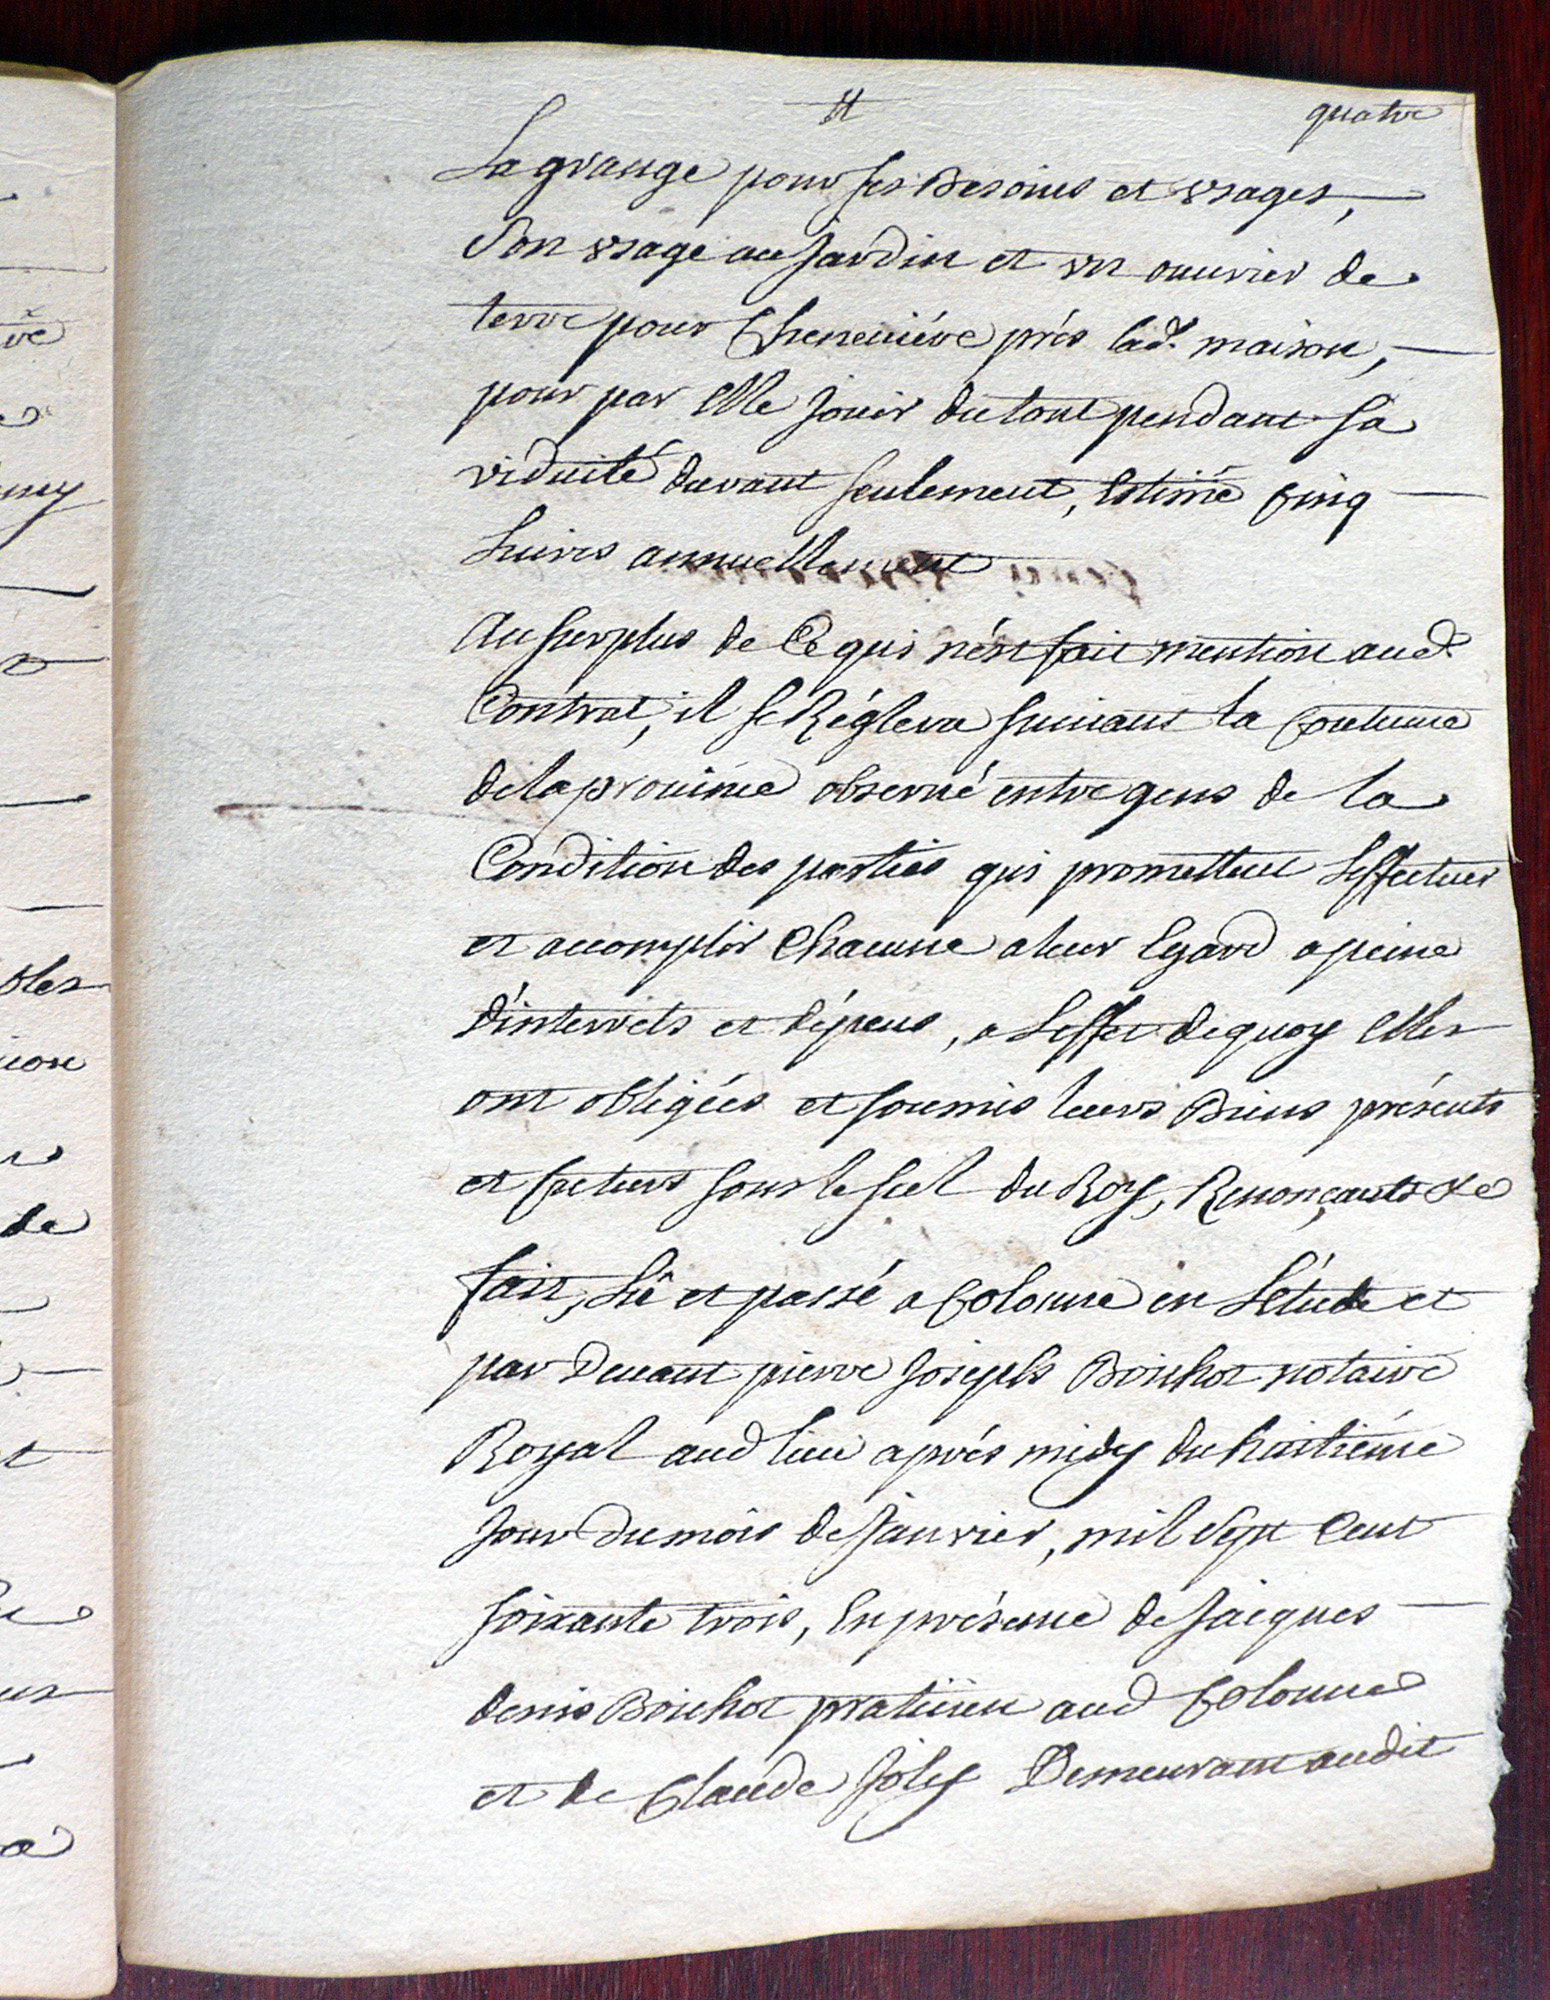 quatre
La grange pour ses Besoins et usages,
Son usage au Jardin et un ouurier de
terre pour Cheneuiére prés lad. maison,
pour par Elle Jouir du tout pendant sa
viduité durant seulement, Estimé Cinq
Liures annuellement
Au surplus de Ce qui n'ést fait mention aud.
Contrat, il se Régléra suiuant la Coutume
de la prouince obserué entre gens de la
Condition des parties qui promettent L'effectuer
et accomplir Chacune a leur Egard a peine
d'interrets et dépens, a L'effet de quoy Elles
ont obligées et soumis leurs Biens présents
et futurs sous le scel du Roy, Renonçants &c
fait, Lû et passé a Colonne en L'étude et
par Deuant pierre Joseph Boichot notaire
Royal aud lieu aprés midy du huitiéme
Jour du mois de Janvier, mil Sept Cent
soixante trois, En présence de Jacques
denis Boichot praticien aud Colonne
et de Claude Joly Demeurant audit